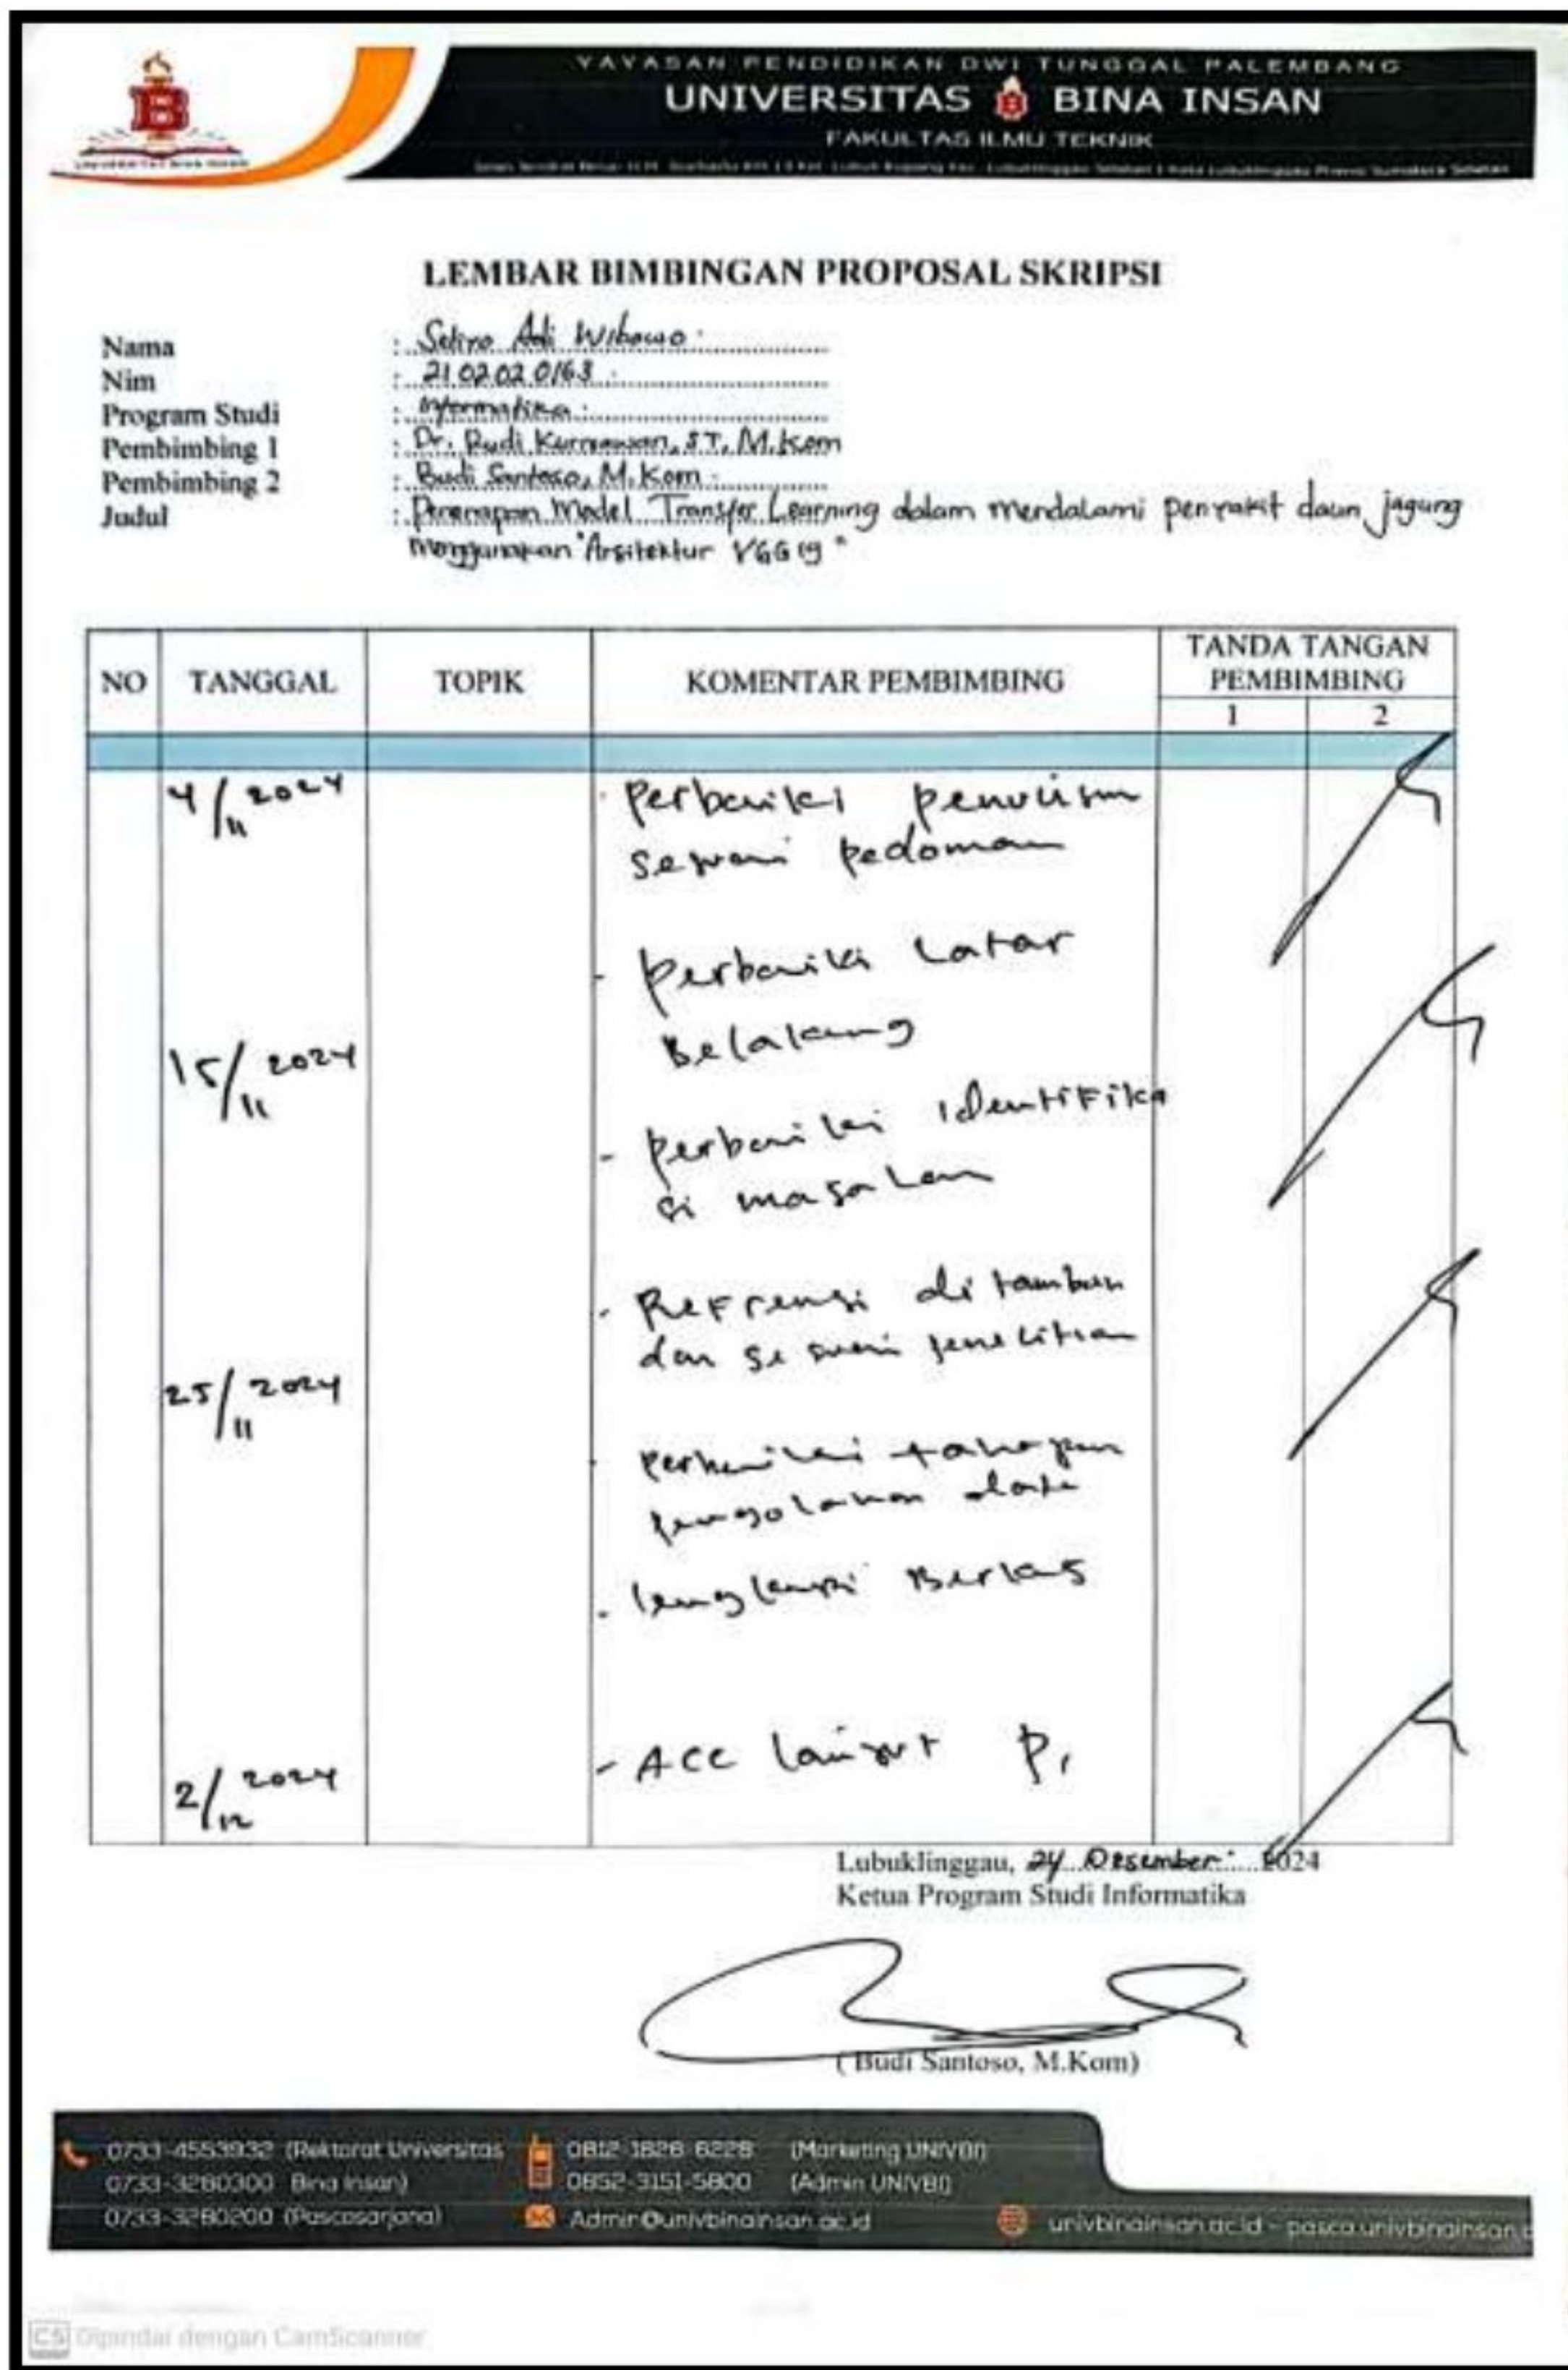 YAYASAN PENDIDIKAN DWI TUNGGAL PALEMBANG
UNIVERSITAS BINA INSAN
FAKULTAS ILMU TEKNIK
UNIVERSITAS BINA INSAN
LEMBAR BIMBINGAN PROPOSAL SKRIPSI
Nama : Adi Wibowo
Nim : 2102020163
Program Studi : Informatika
Pembimbing 1 : Dr. Budi Kurniawan, ST, M.Kom
Pembimbing 2 : Budi Santoso, M.Kom
Judul : Penerapan Model Transfer Learning dalam mendalami penyakit daun jagung
menggunakan "Arsitektur VGG 19"
NO TANGGAL TOPIK KOMENTAR PEMBIMBING TANDA TANGAN PEMBIMBING
1 2
4/11 2024 - Perbaiki penulisan
sesuai pedoman
- Perbaiki Latar
Belakang
15/11 2024
- Perbaiki identifika
si masalah
- Refrensi di tambah
dan sesuai penelitian
25/11 2024
- Perbaiki tahapan
pengolahan data
- lengkapi Berkas
- ACC lanjut P1
2/12 2024
Lubuklinggau, 24 Desember 2024
Ketua Program Studi Informatika
(Budi Santoso, M.Kom)
0733-4553932 (Rektorat Universitas 0812-1826-6228 (Marketing UNIVBI)
0733-3280300 Bina Insan) 0852-3151-5800 (Admin UNIVBI)
0733-3280200 (Pascasarjana) Admin@univbinainsan.ac.id univbinainsan.ac.id - pasca.univbinainsan.
CS Dipindai dengan CamScanner